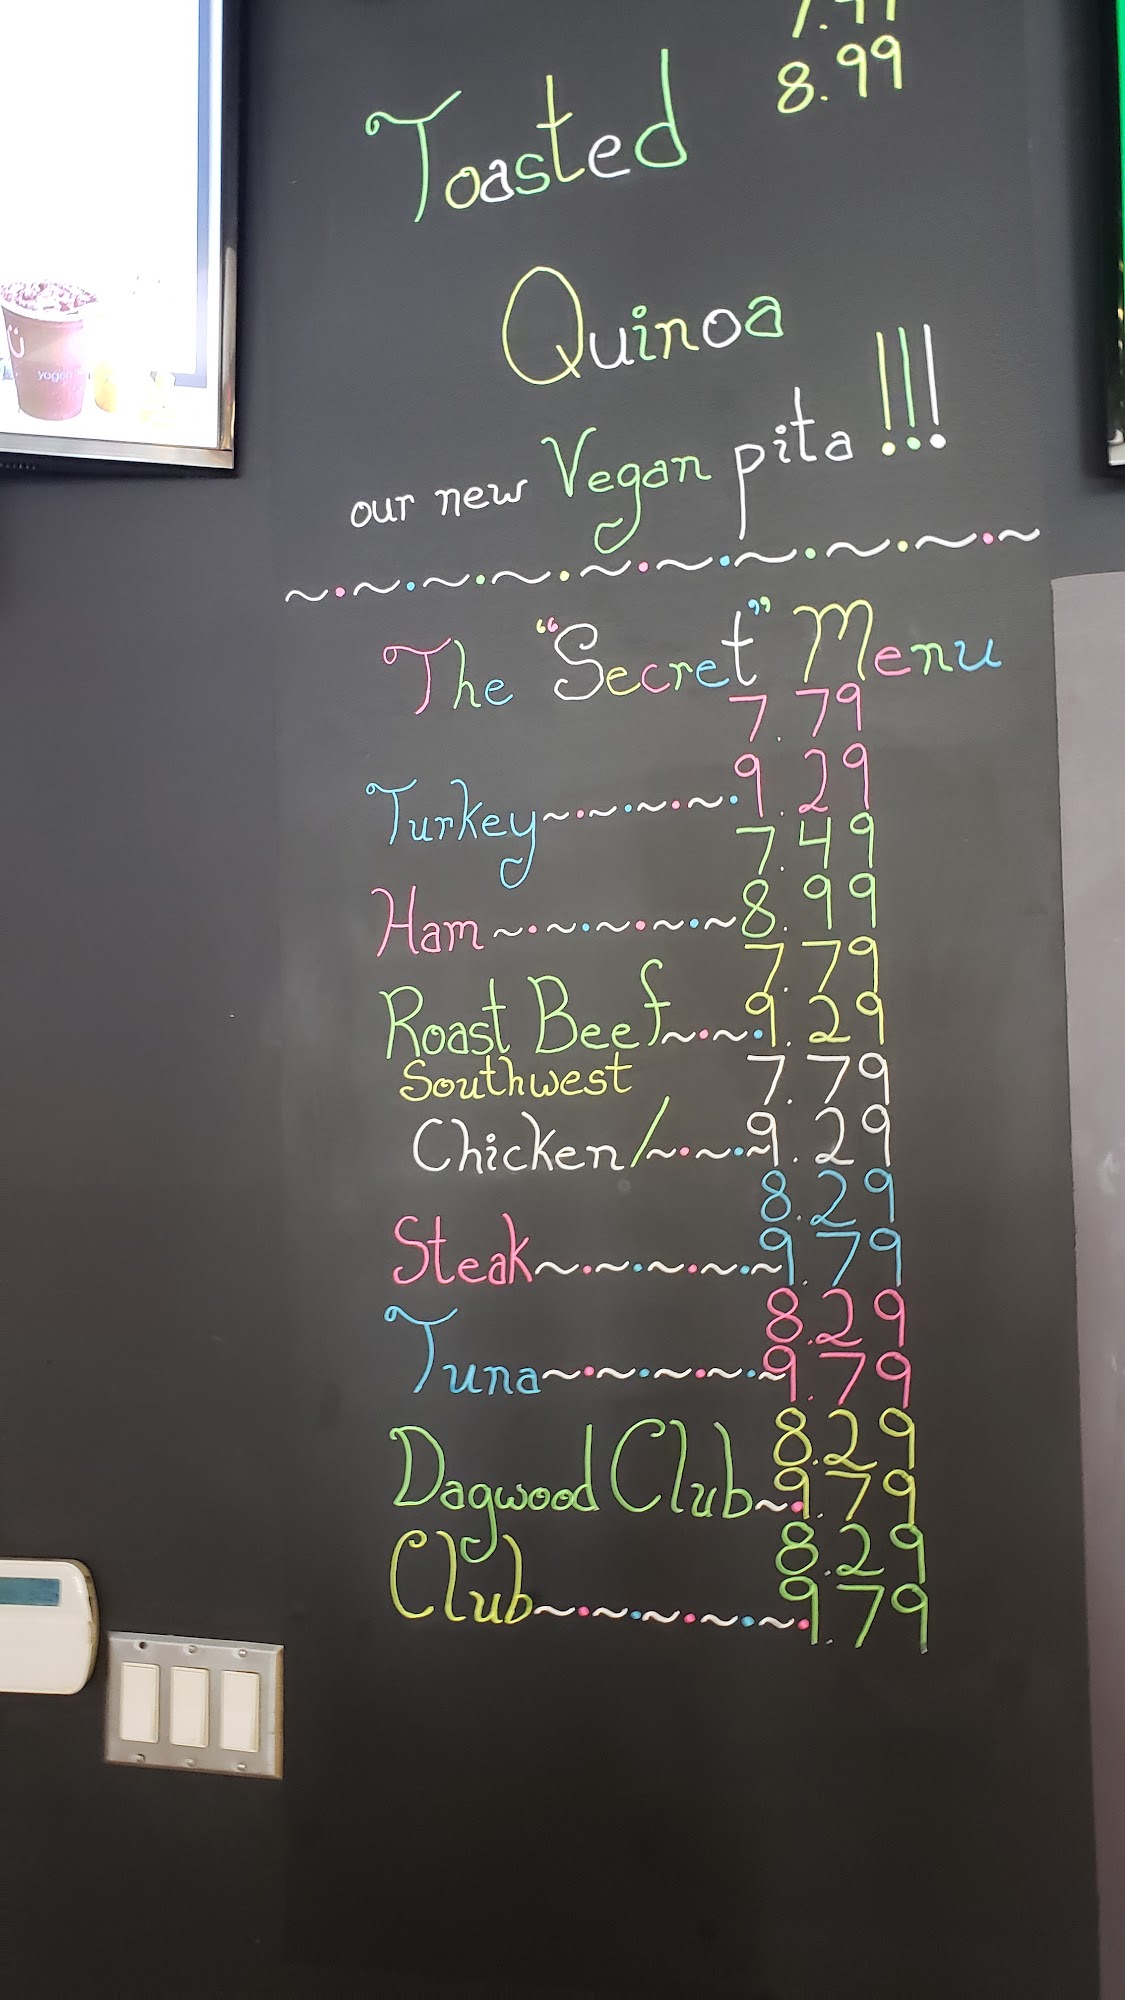 8.99
Toasted
Quinoa
our new Vegan pita !!!
The "Secret" Menu
7.79
Turkey 9.29
7.49
Ham 8.99
7.79
Roast Beef 9.29
Southwest 7.79
Chicken/ 9.29
8.29
Steak 9.79
8.29
Tuna 9.79
8.29
Dagwood Club 9.79
8.29
Club 9.79